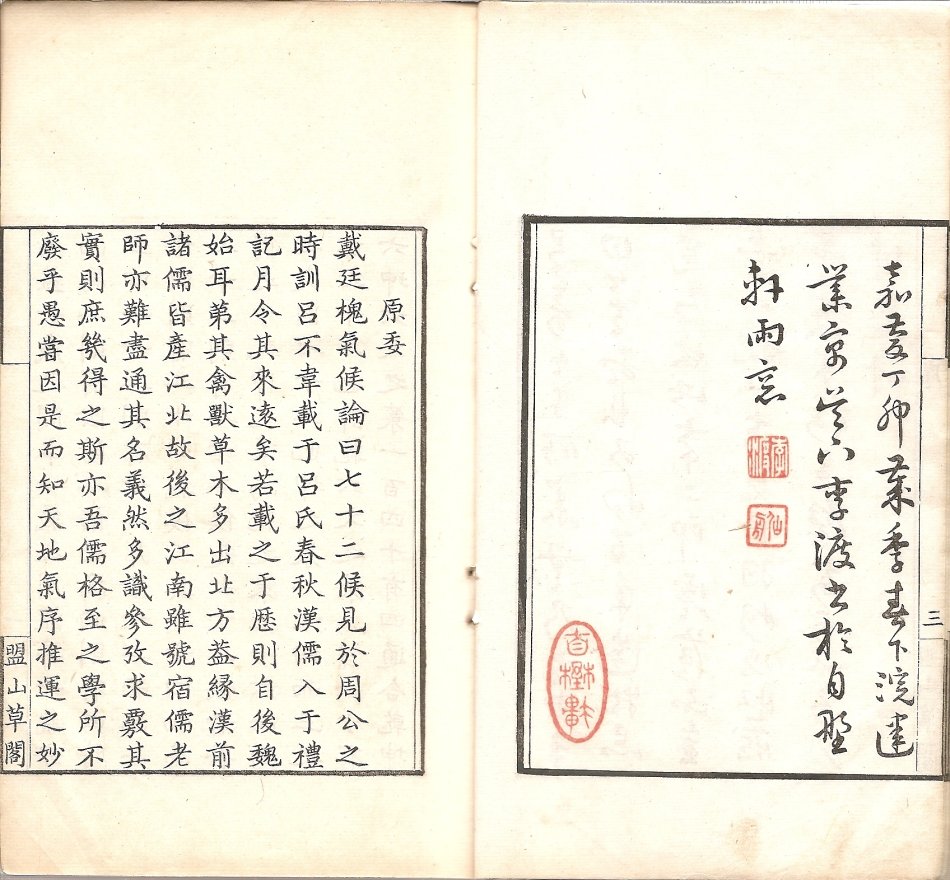 嘉慶丁卯歲季春下浣建
業李渡书於自野
軒雨窓
李渡
三
原委
戴廷槐氣候論曰七十二候見於周公之
時訓呂不韋載于呂氏春秋漢儒入于禮
記月令其來遠矣若載之于歷則自後魏
始耳苐其禽獸草木多出北方葢緣漢前
諸儒皆產江北故後之江南雖號宿儒老
師亦難盡通其名義然多識參攷求覈其
實則庶幾得之斯亦吾儒格至之學所不
廢乎愚嘗因是而知天地氣序推運之妙
盟山草閣